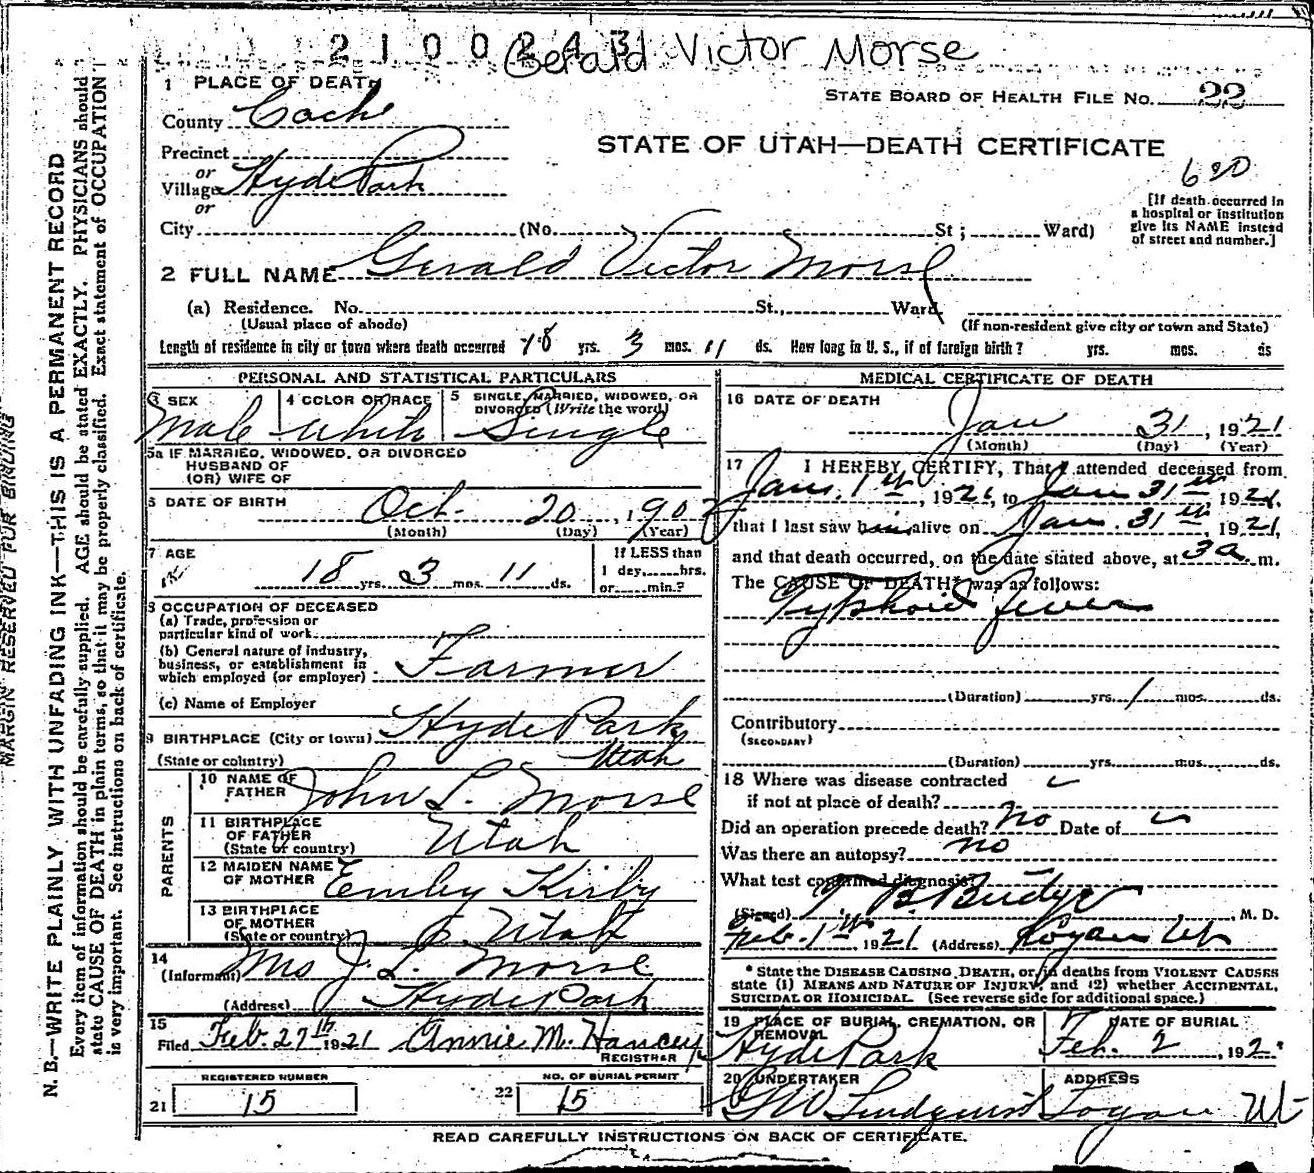 2100243
Gerald Victor Morse
1 PLACE OF DEATH
STATE BOARD OF HEALTH FILE No. 22
County Cach
STATE OF UTAH—DEATH CERTIFICATE
Precinct
or
Village Hyde Park
620
or
[If death occurred in a hospital or institution give its NAME instead of street and number.]
City (No. St; Ward)
2 FULL NAME Gerald Victor Morse
(a) Residence. No. St., Ward,
(Usual place of abode) (If non-resident give city or town and State)
Length of residence in city or town where death occurred 18 yrs. 3 mos. 11 ds. How long in U. S., if of foreign birth? yrs. mos. ds
PERSONAL AND STATISTICAL PARTICULARS
3 SEX Male
4 COLOR OR RACE White
5 SINGLE, MARRIED, WIDOWED, OR DIVORCED (Write the word) Single
5a IF MARRIED, WIDOWED, OR DIVORCED
HUSBAND OF
(OR) WIFE OF
6 DATE OF BIRTH Oct. 20, 1902
(Month) (Day) (Year)
7 AGE 18 yrs. 3 mos. 11 ds.
If LESS than
1 day, hrs.
or min.?
8 OCCUPATION OF DECEASED
(a) Trade, profession or
particular kind of work
(b) General nature of industry,
business, or establishment in
which employed (or employer) Farmer
(c) Name of Employer
9 BIRTHPLACE (City or town) Hyde Park
(State or country) Utah
PARENTS
10 NAME OF FATHER John L. Morse
11 BIRTHPLACE OF FATHER (State or country) Utah
12 MAIDEN NAME OF MOTHER Emley Kirby
13 BIRTHPLACE OF MOTHER (State or country) Utah
14 (Informant) Mrs J. L. Morse
(Address) Hyde Park
15 Filed Feb. 27th 1921 Annie M. Hancey
REGISTRAR
REGISTERED NUMBER
21 15
NO. OF BURIAL PERMIT
22 15
MEDICAL CERTIFICATE OF DEATH
16 DATE OF DEATH Jan 31, 1921
(Month) (Day) (Year)
17 I HEREBY CERTIFY, That I attended deceased from
Jan. 1st, 1921, to Jan 31st, 1921,
that I last saw him alive on Jan. 31st, 1921,
and that death occurred, on the date stated above, at 3 a m.
The CAUSE OF DEATH* was as follows:
Typhoid fever
(Duration) yrs. 1 mos. ds.
Contributory
(SECONDARY)
(Duration) yrs. mos. ds.
18 Where was disease contracted
if not at place of death?
Did an operation precede death? no Date of
Was there an autopsy? no
What test confirmed diagnosis?
(Signed) T B Budge, M. D.
Feb. 1st, 1921 (Address) Logan Ut
* State the DISEASE CAUSING DEATH, or, in deaths from VIOLENT CAUSES
state (1) MEANS AND NATURE OF INJURY, and (2) whether ACCIDENTAL,
SUICIDAL OR HOMICIDAL. (See reverse side for additional space.)
19 PLACE OF BURIAL, CREMATION, OR REMOVAL Hyde Park
DATE OF BURIAL Feb. 2, 192
20 UNDERTAKER GW Lindquist
ADDRESS Logan Ut
READ CAREFULLY INSTRUCTIONS ON BACK OF CERTIFICATE.
MARGIN RESERVED FOR BINDING
N. B.—WRITE PLAINLY, WITH UNFADING INK—THIS IS A PERMANENT RECORD
Every item of information should be carefully supplied. AGE should be stated EXACTLY. PHYSICIANS should
state CAUSE OF DEATH in plain terms, so that it may be properly classified. Exact statement of OCCUPATION
is very important. See instructions on back of certificate.